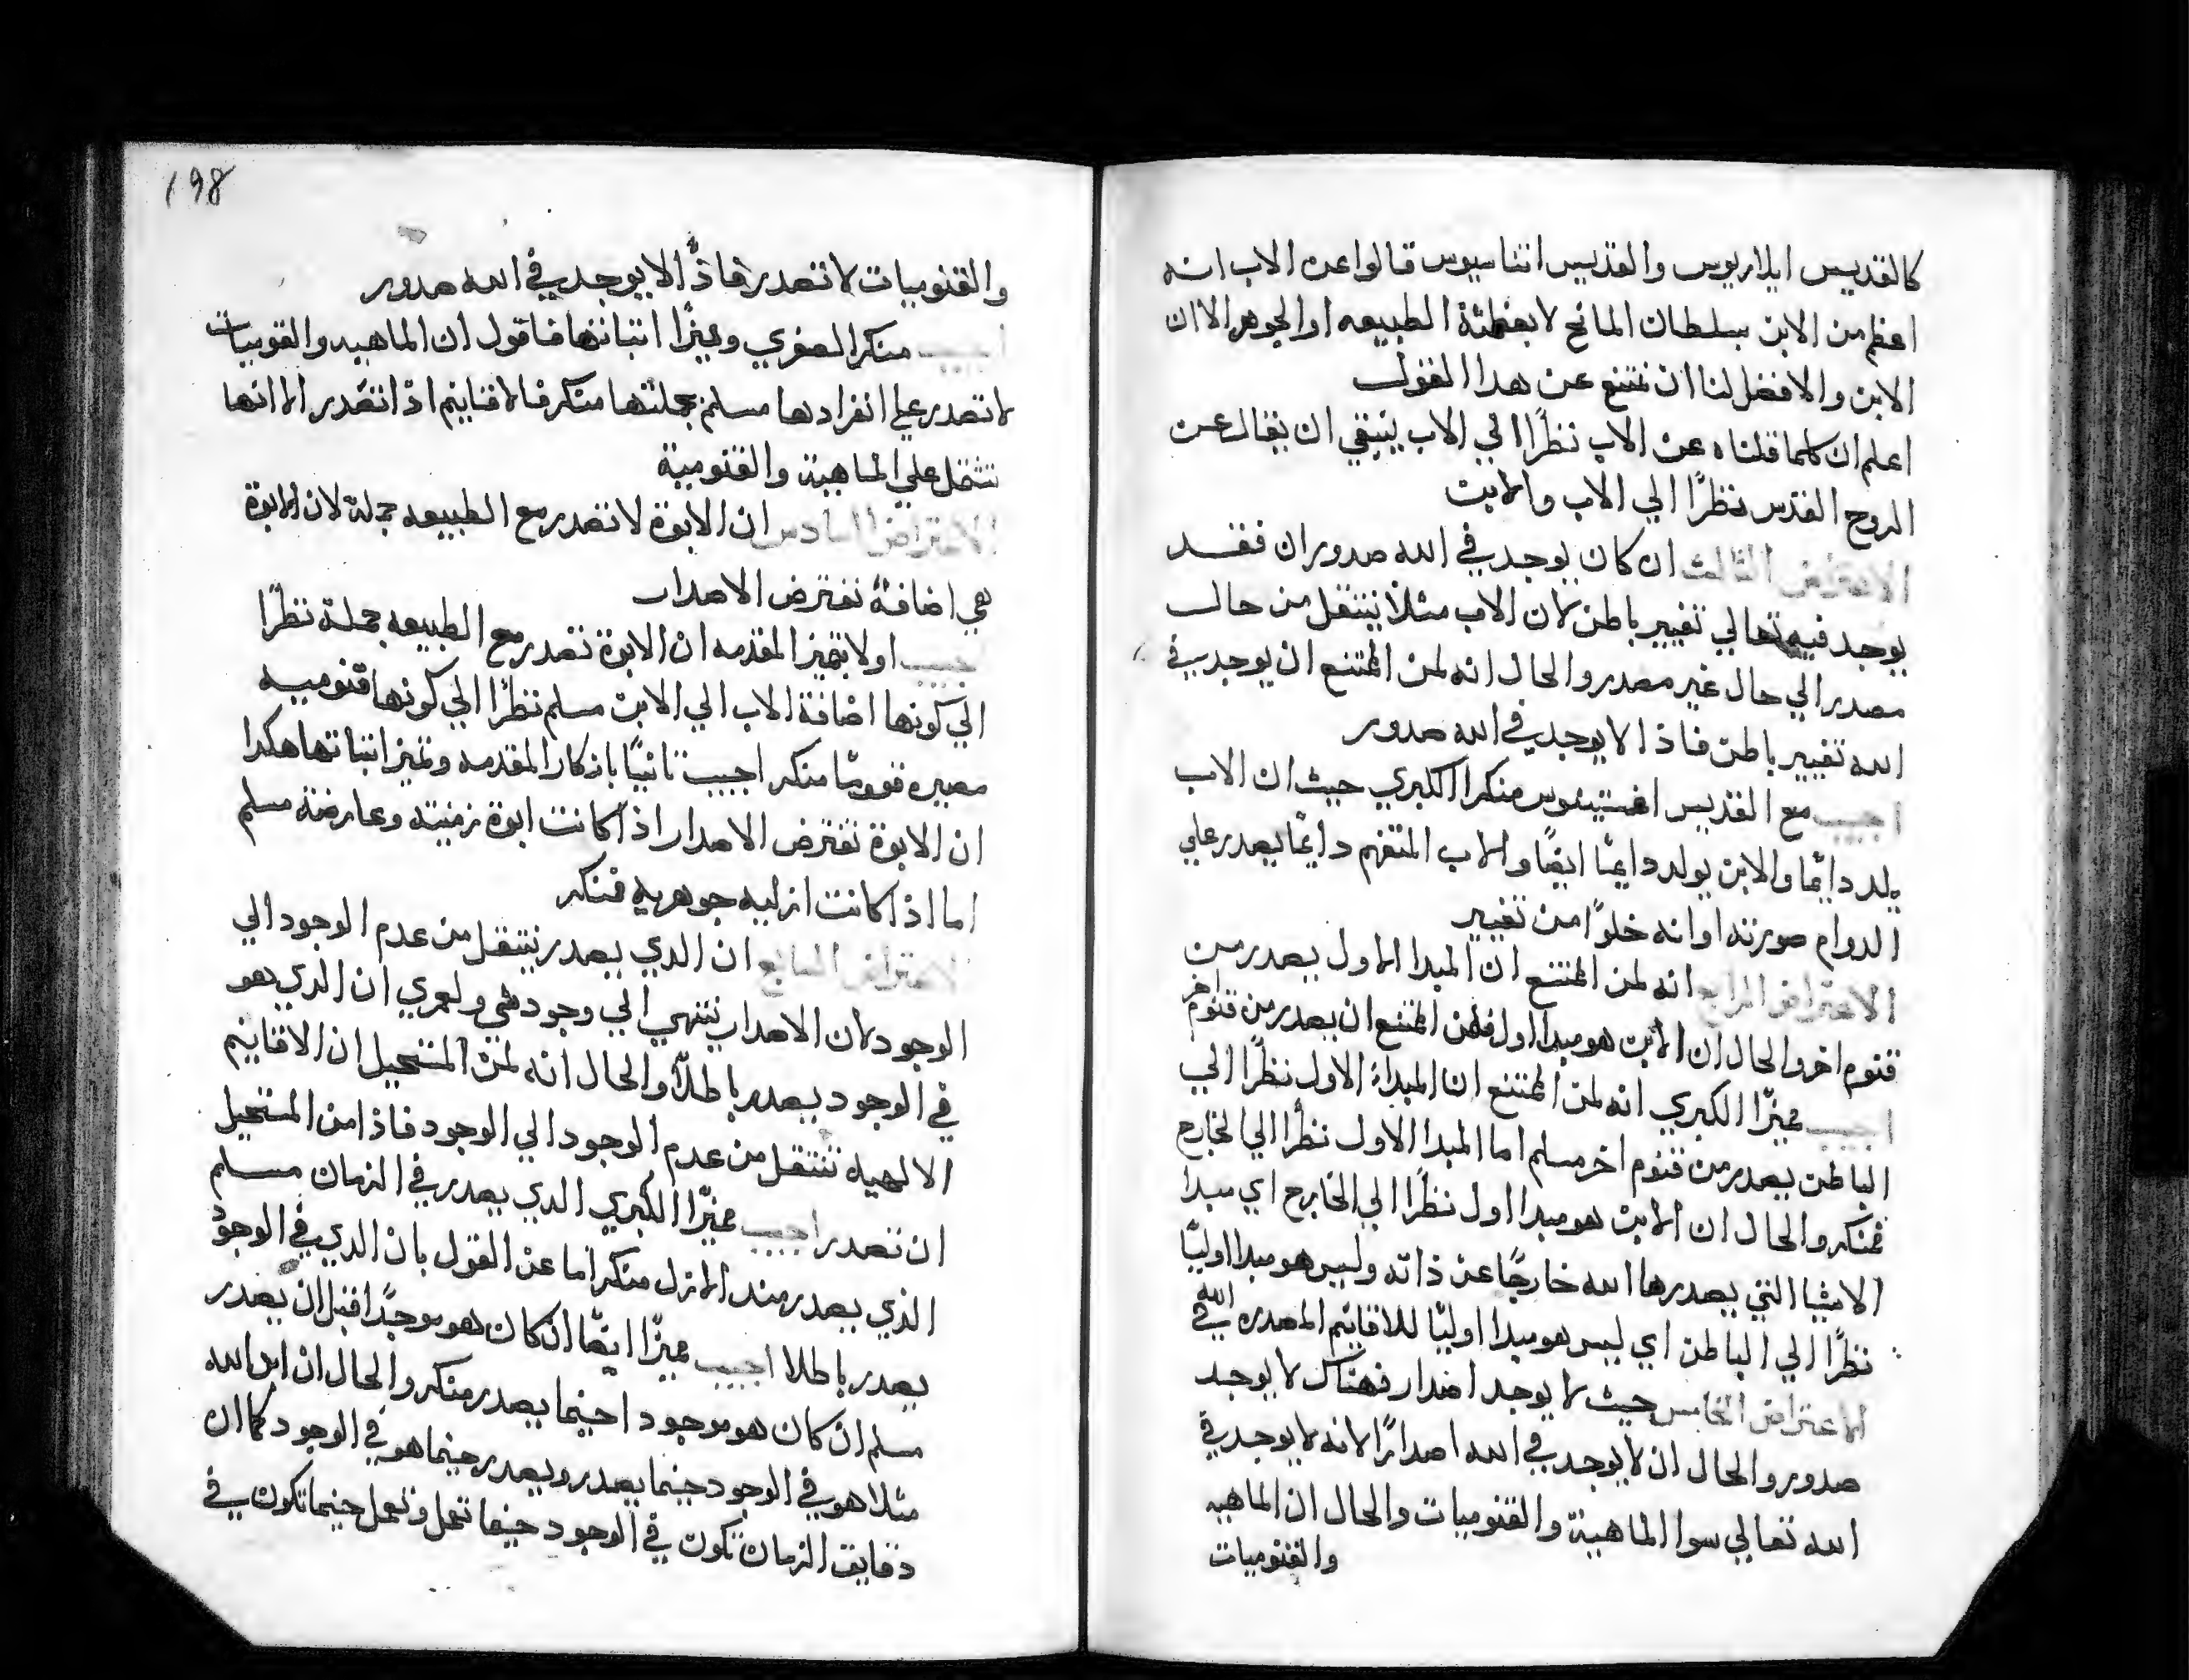 كالقديس ايلاريوس والقديس اتناسيوس قالوا عن الاب انه
اعظم من الابن بسلطان المانح لا بعظمة الطبيعه او الجوهر الا ان
الابن والافضل لنا ان نمتنع عن هدا القول
اعلم ان كلما قلناه عن الاب نظرًا الي الاب ينبغي ان يقال عن
الروح القدس نظرًا الي الاب والابن
الاعتراض الثالث ان كان يوجد في الله صدوران فقد
يوجد فيه تعالي تغيير باطن لان الاب مثلًا ينتقل من حال
مصدر الي حال غير مصدر والحال انه لمن الممتنع ان يوجد في
الله تغيير باطن فاذا لا يوجد في الله صدور
اجيب مع القديس اغستينوس منكرا الكبري حيث ان الاب
يلد دايمًا والابن يولد دايمًا ايضًا والاب المتفهم دايمًا يصدر علي
الدوام صورته او انه خلوًا من تغيير
الاعتراض الرابع انه لمن الممتنع ان المبدا الاول يصدر من
قنوم اخر والحال ان الابن هو مبدا اول فلمن الممتنع ان يصدر من قنوم اخر
اجيب مميزًا الكبري انه لمن الممتنع ان المبداء الاول نظرًا الي
الباطن يصدر من قنوم اخر مسلم اما المبدا الاول نظرًا الي الخارج
فمنكر والحال ان الابن هو مبدا اول نظرًا الي الخارج اي مبدا
الاشيا التي يصدرها الله خارجًا عن ذاته وليس هو مبدا اوليًا
نظرًا الي الباطن اي ليس هو مبدا اوليًا للاقانيم المصدره في الله
الاعتراض الخامس حيث لا يوجد اصدار فهناك لا يوجد
صدور والحال ان لا يوجد في الله اصدارًا لانه لا يوجد في
الله تعالي سوا الماهية والقنوميات والحال ان الماهيه
والقنوميات
198
والقنوميات لا تصدر فاذًا لا يوجد في الله صدور
اجيب منكرا الصغري ومميزًا اتباتها فاقول ان الماهيه والقوميات
لا تصدر علي انفرادها مسلم بجملتها منكر فالاقانيم اذا تصدر الا انها
تشتمل علي الماهية والقنومية
الاعتراض السادس ان الابوة لا تصدر مع الطبيعه جملة لان الابوة
هي اضافة تفترض الاصدار
اجيب اولا بتميز المقدمه ان الابوة تصدر مع الطبيعه جملة نظرًا
الي كونها اضافة الاب الي الابن مسلم نظرًا الي كونها قنوميه
مصيره قنومًا منكر اجيب تانيًا بانكار المقدمه وتميز اتباتها هكدا
ان الابوة تفترض الاصدار اذا كانت ابوة زمنية وعارضة مسلم
اما اذا كانت ازليه جوهريه فمنكر
الاعتراض السابع ان الدي يصدر ينتقل من عدم الوجود الي
الوجود لان الاصدار ينتهي الي وجود شي ولعمري ان الدي هو
في الوجود يصدر باطلًا والحال انه لمن المستحيل ان الاقانيم
الالهيه تنتقل من عدم الوجود الي الوجود فاذا من المستحيل
ان تصدر اجيب مميزًا الكبري الدي يصدر في الزمان مسلم
الذي يصدر مند الازل منكر اما عن القول بان الدي في الوجود
يصدر باطلا اجيب مميزًا ايضًا ان كان هو موجودًا قبل ان يصدر
مسلم ان كان هو موجودا حينما يصدر منكر والحال ان ابن الله
مثلا هو في الوجود حينما يصدر ويصدر حينما هو في الوجود كما ان
دقايق الزمان تكون في الوجود حينما تعمل وتعمل حينما تكون في